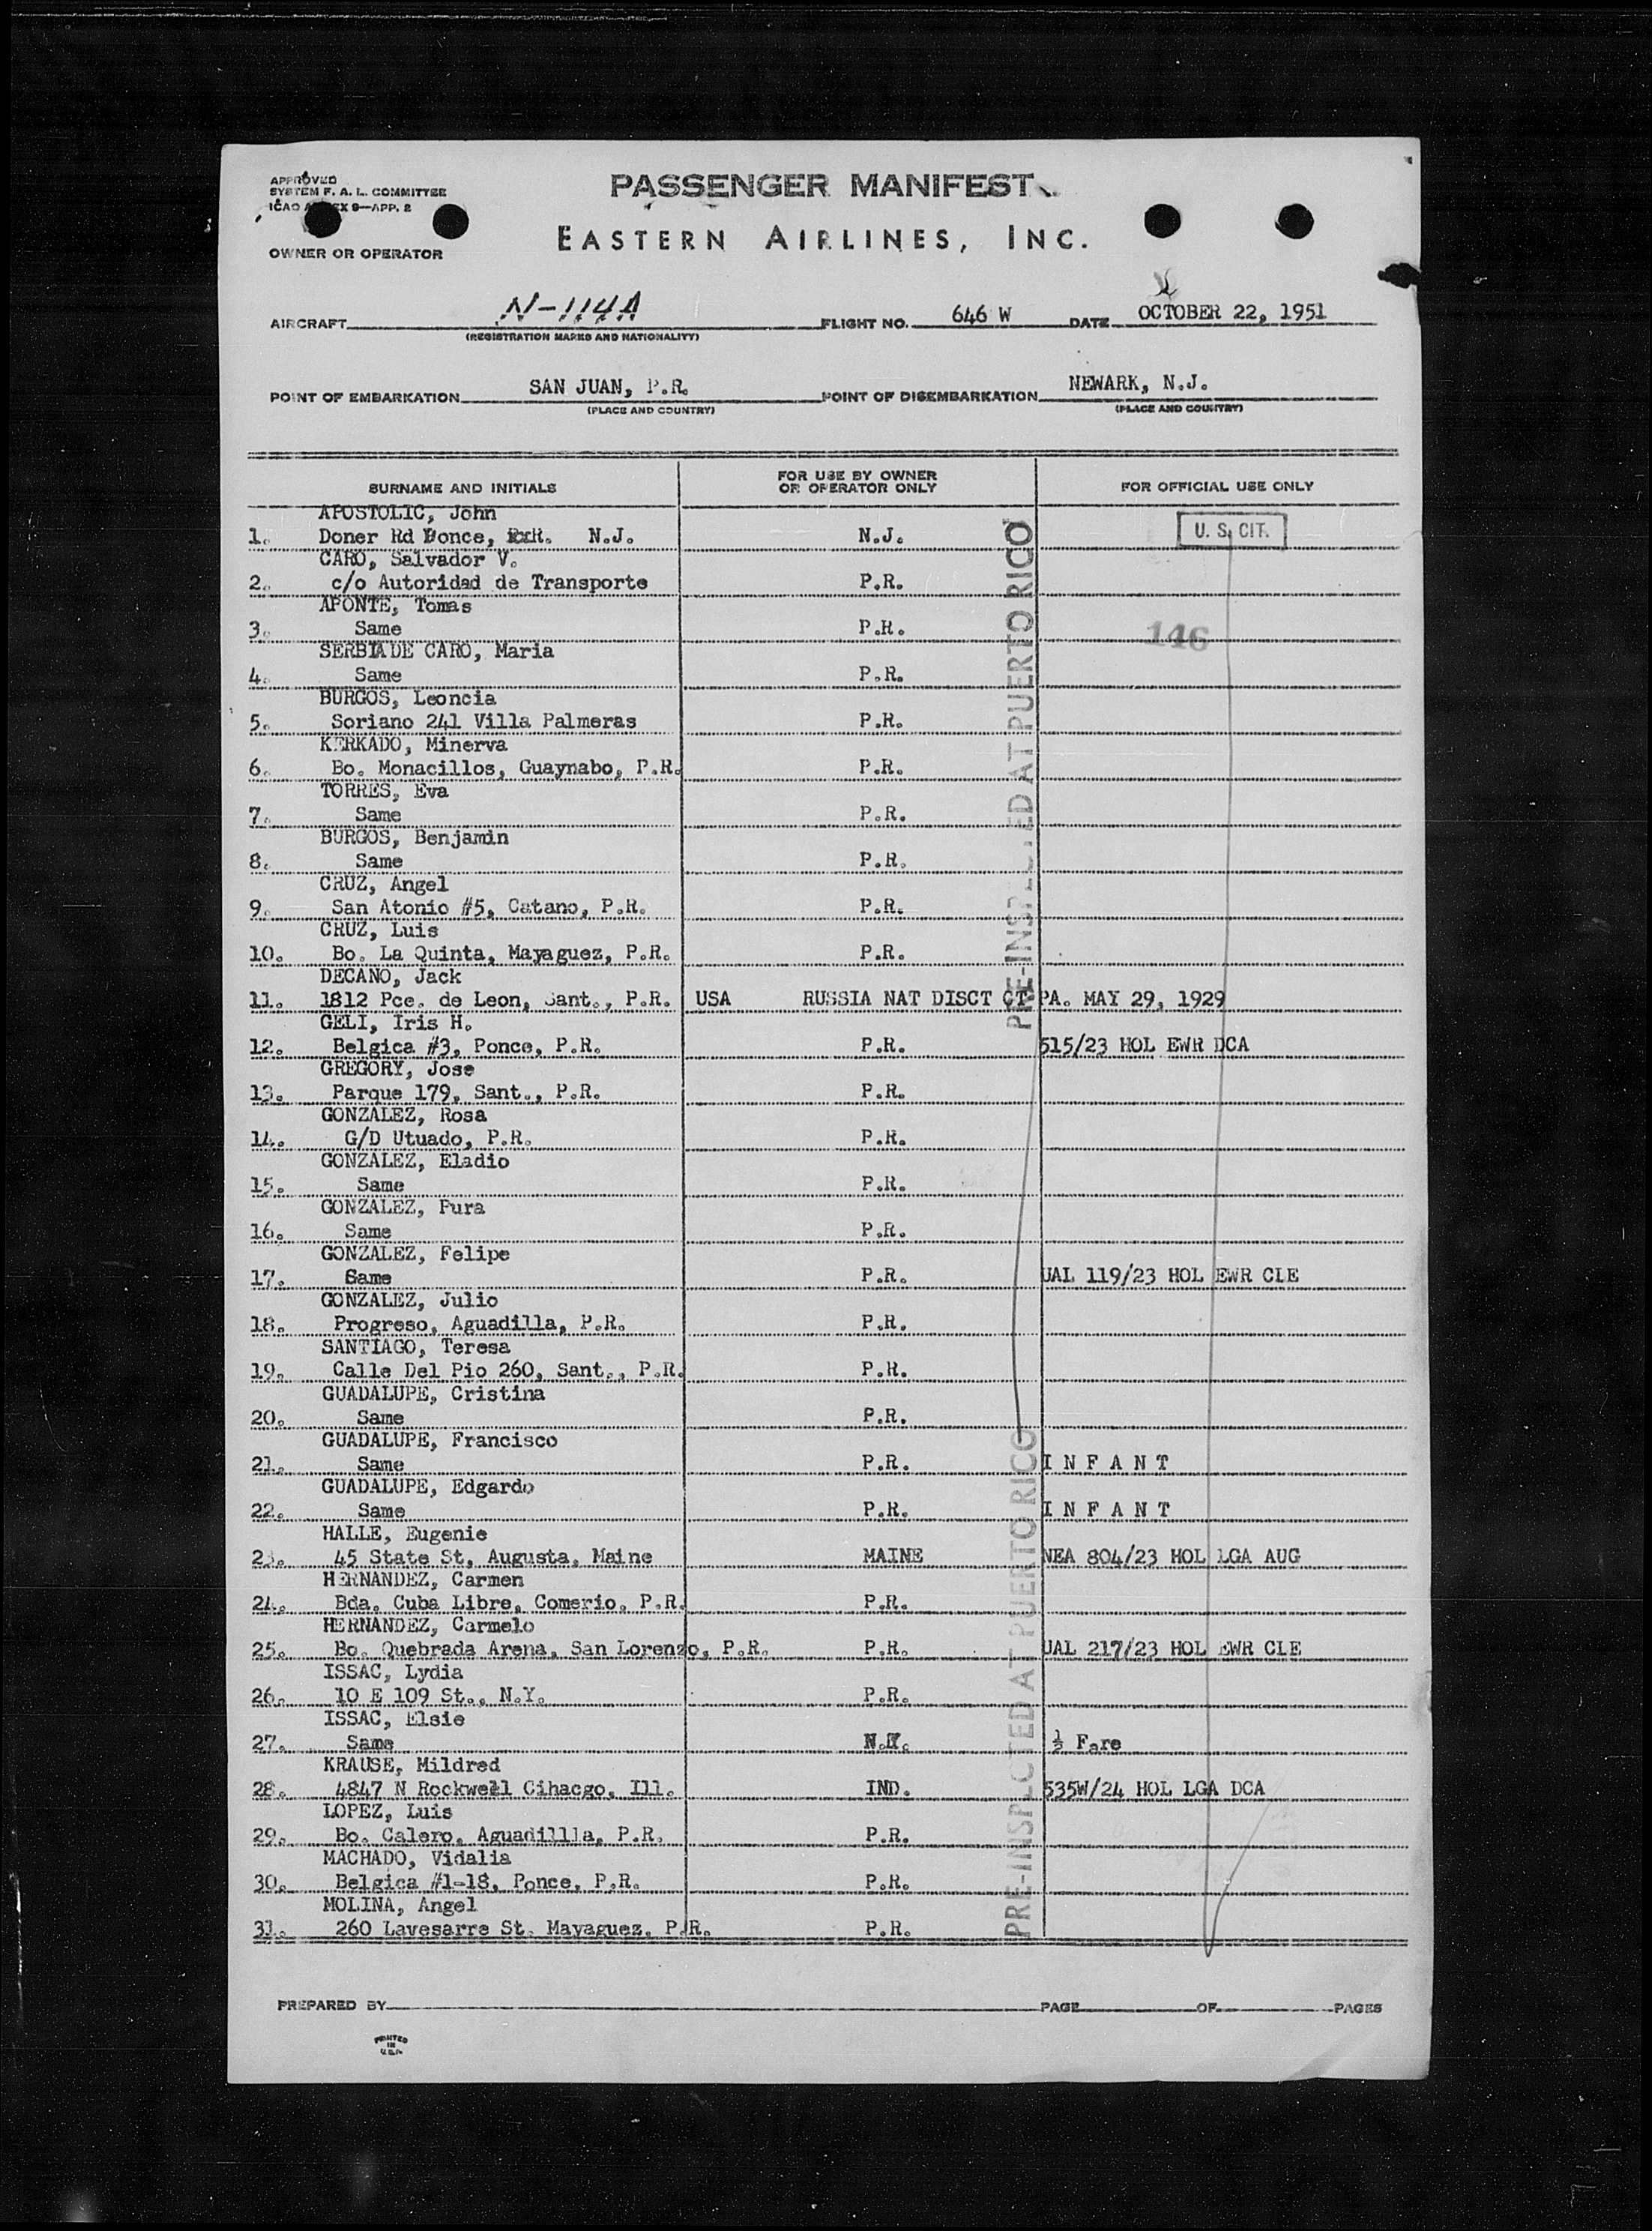 APPROVED
SYSTEM F. A. L. COMMITTEE
ICAO ANNEX 9—APP. 2
PASSENGER MANIFEST
EASTERN AIRLINES, INC.
OWNER OR OPERATOR
AIRCRAFT N-114A FLIGHT NO. 646 W DATE OCTOBER 22, 1951
(REGISTRATION MARKS AND NATIONALITY)
POINT OF EMBARKATION SAN JUAN, P.R. POINT OF DISEMBARKATION NEWARK, N.J.
(PLACE AND COUNTRY) (PLACE AND COUNTRY)
SURNAME AND INITIALS FOR USE BY OWNER OR OPERATOR ONLY FOR OFFICIAL USE ONLY
APOSTOLIC, John
1. Doner Rd Ponce, N.J. N.J. U. S. CIT.
CARO, Salvador V.
2. c/o Autoridad de Transporte P.R.
APONTE, Tomas
3. Same P.R. 146
SERBIA DE CARO, Maria
4. Same P.R.
BURGOS, Leoncia
5. Soriano 241 Villa Palmeras P.R.
KERKADO, Minerva
6. Bo. Monacillos, Guaynabo, P.R. P.R.
TORRES, Eva
7. Same P.R.
BURGOS, Benjamin
8. Same P.R.
CRUZ, Angel
9. San Atonio #5, Catano, P.R. P.R.
CRUZ, Luis
10. Bo. La Quinta, Mayaguez, P.R. P.R.
DECANO, Jack
11. 1812 Pce. de Leon, Sant., P.R. USA RUSSIA NAT DISCT CT PA. MAY 29, 1929
GELI, Iris H.
12. Belgica #3, Ponce, P.R. P.R. 515/23 HOL EWR DCA
GREGORY, Jose
13. Parque 179, Sant., P.R. P.R.
GONZALEZ, Rosa
14. G/D Utuado, P.R. P.R.
GONZALEZ, Eladio
15. Same P.R.
GONZALEZ, Pura
16. Same P.R.
GONZALEZ, Felipe
17. Same P.R. UAL 119/23 HOL EWR CLE
GONZALEZ, Julio
18. Progreso, Aguadilla, P.R. P.R.
SANTIAGO, Teresa
19. Calle Del Pio 260, Sant., P.R. P.R.
GUADALUPE, Cristina
20. Same P.R.
GUADALUPE, Francisco
21. Same P.R. I N F A N T
GUADALUPE, Edgardo
22. Same P.R. I N F A N T
HALLE, Eugenie
23. 45 State St, Augusta, Maine MAINE NEA 804/23 HOL LGA AUG
HERNANDEZ, Carmen
24. Bda. Cuba Libre, Comerio, P.R. P.R.
HERNANDEZ, Carmelo
25. Bo. Quebrada Arena, San Lorenzo, P.R. P.R. UAL 217/23 HOL EWR CLE
ISSAC, Lydia
26. 10 E 109 St., N.Y. P.R.
ISSAC, Elsie
27. Same N.Y. ½ Fare
KRAUSE, Mildred
28. 4847 N Rockwell Cihacgo, Ill. IND. 535W/24 HOL LGA DCA
LOPEZ, Luis
29. Bo. Calero, Aguadillla, P.R. P.R.
MACHADO, Vidalia
30. Belgica #1-18, Ponce, P.R. P.R.
MOLINA, Angel
31. 260 Lavesarre St. Mayaguez, P.R. P.R.
PRE-INSPECTED AT PUERTO RICO
PRE-INSPECTED AT PUERTO RICO
PREPARED BY PAGE OF PAGES
PRINTED
IN
U.S.A.